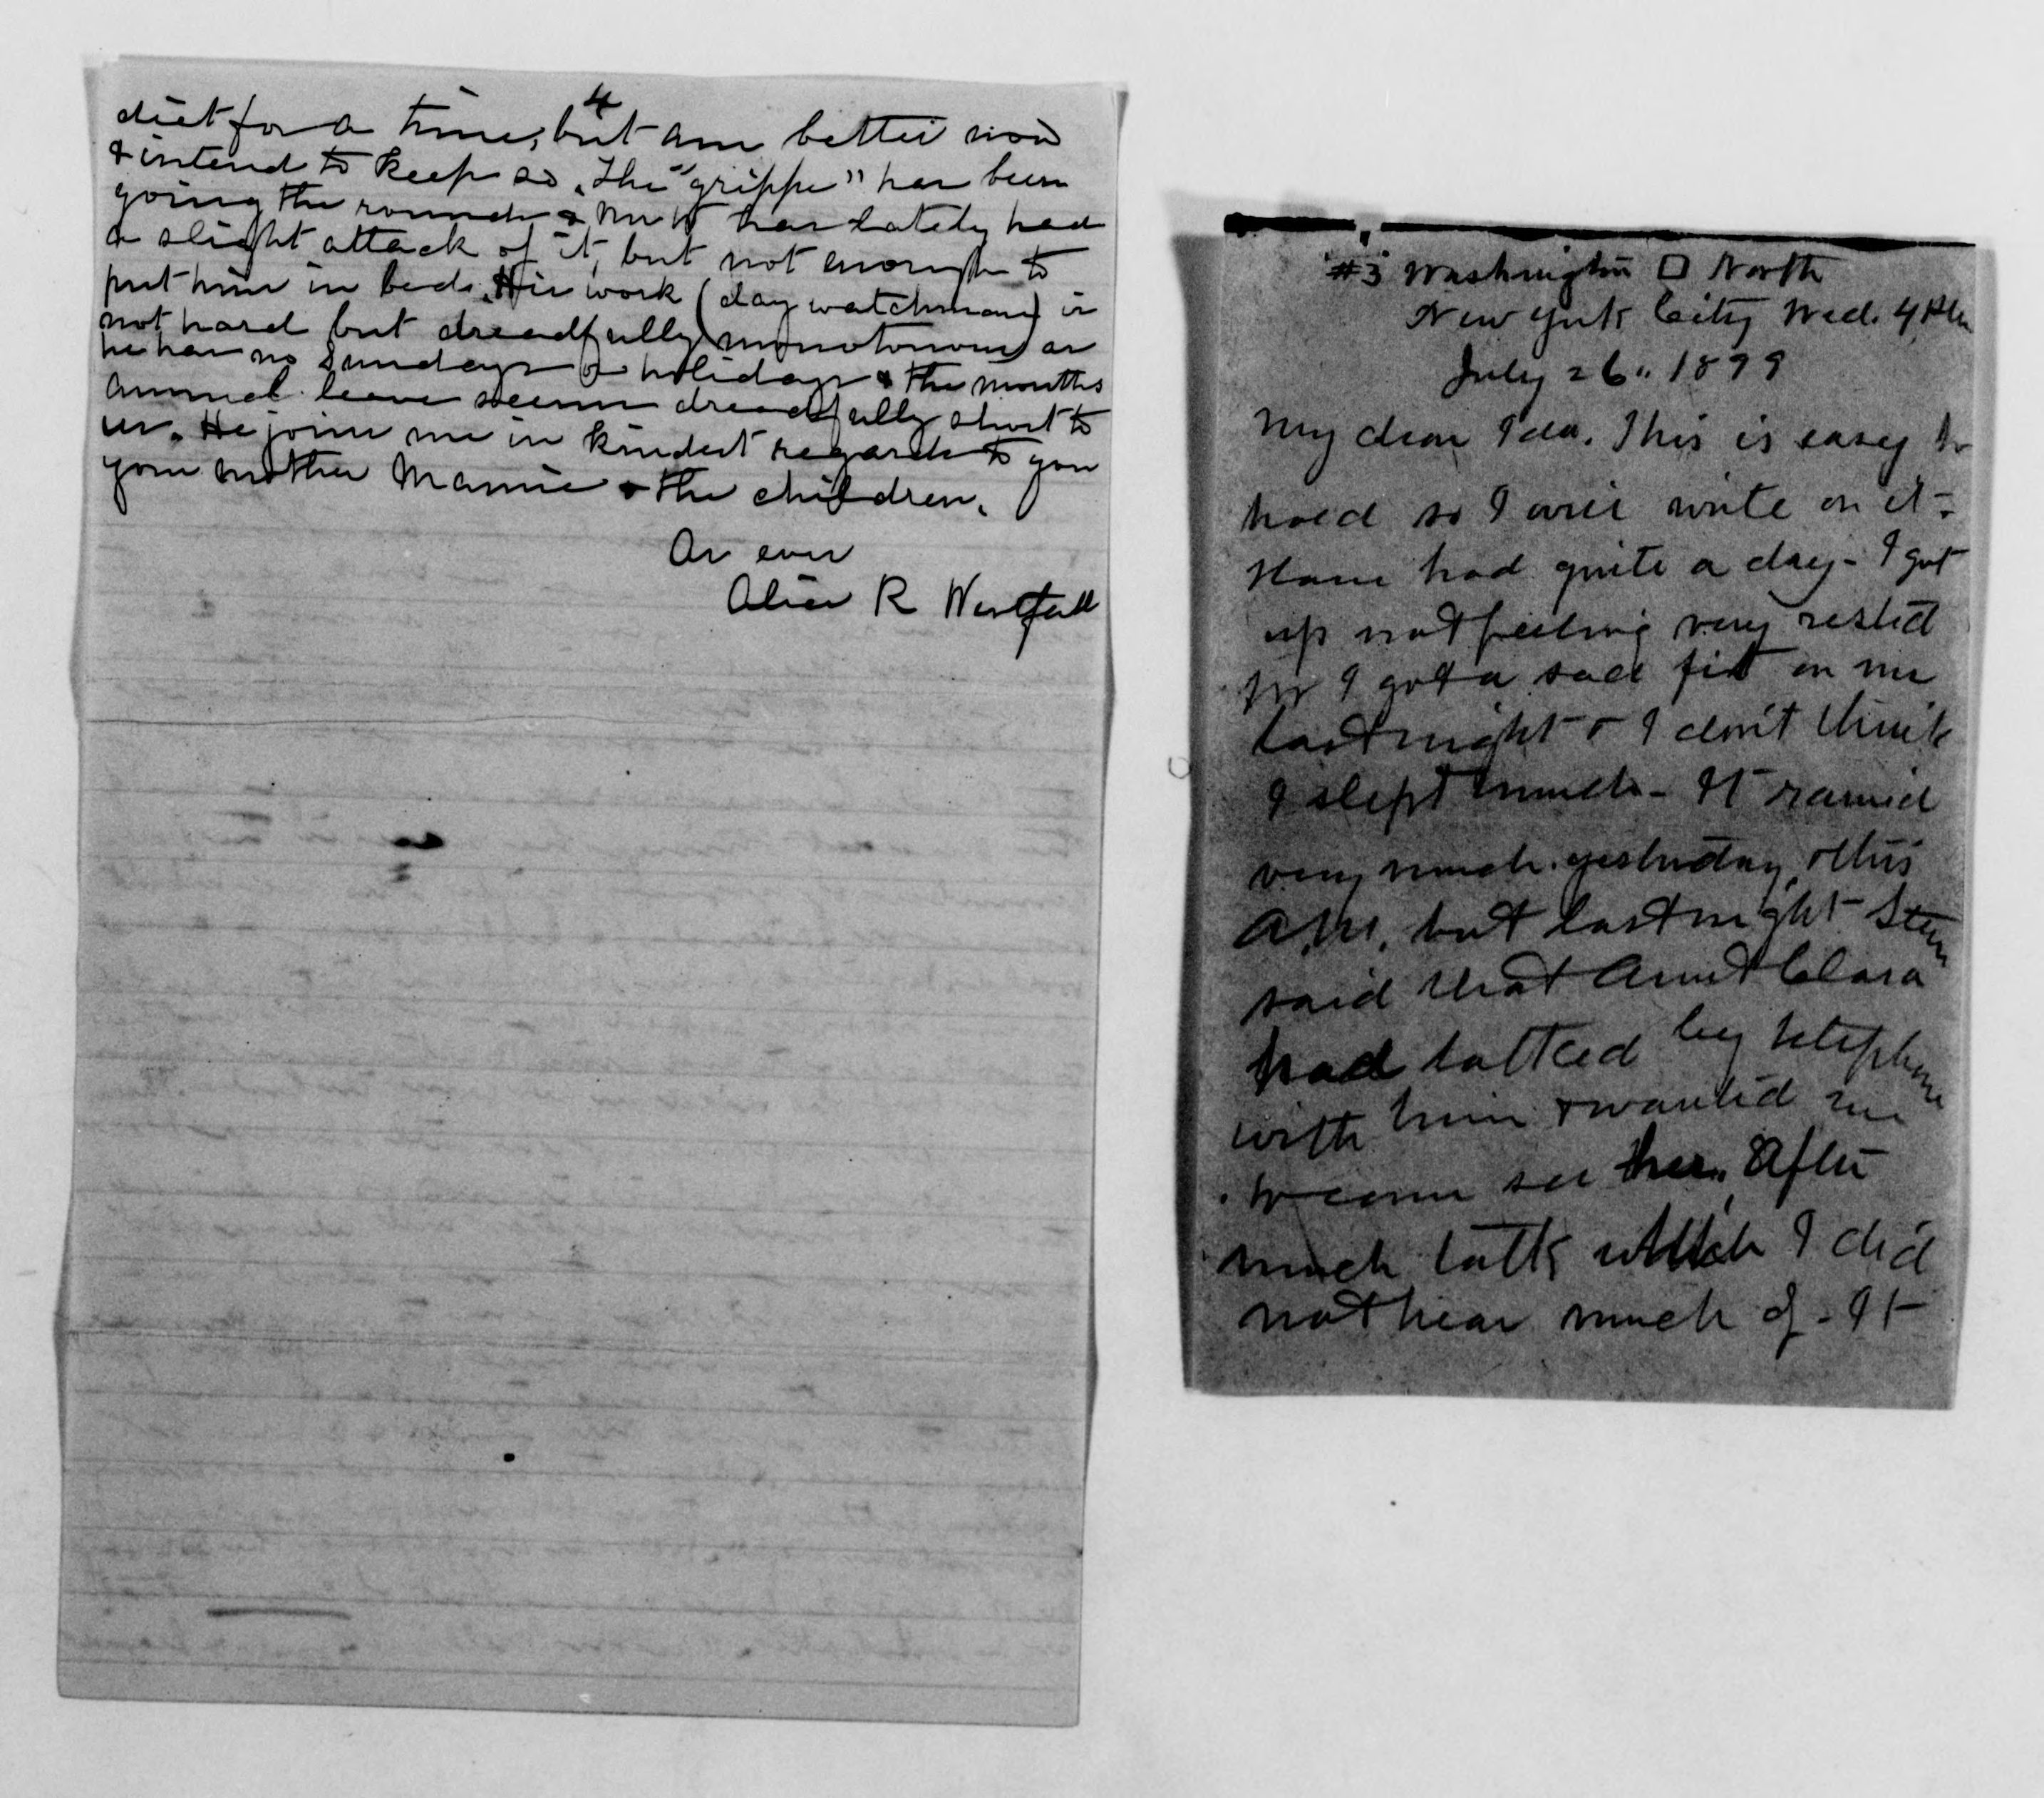 4
diet for a time, but am better now
& intend to keep so. The "grippe" has been
going the rounds & Mr W has lately had
a slight attack of it, but not enough to
put him in bed. His work (day watchman) is
not hard but dreadfully monotonous as
he has no Sundays or holidays & the months
annual leave seems dreadfully short to
us. He joins me in kindest regards to you
your mother Mamie & the children.
As ever
Alice R Westfall
#3 Washington □ North
New York City Wed. 4 P.M.
July 26" 1899
My dear Ida. This is easy to
hold so I will write on it-
Have had quite a day - I got
up not feeling very rested
for I got a sad fit on me
last night & I don't think
I slept much - It rained
very much yesterday, & this
A.M. but last night Stem
said that Aunt Clara
had talked by telephone
with him & wanted me
to come see her. After
much talk which I did
not hear much of - It